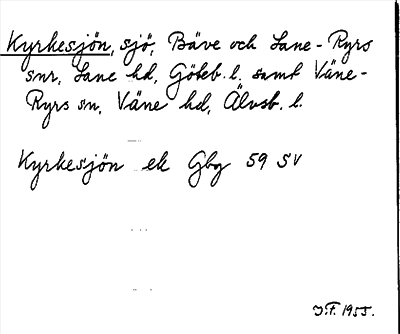 Kyrkesjön, sjö, Bäve och Lane-Ryrs
snr, Lane hd, Göteb. l. samt Väne-
Ryrs sn, Väne hd, Älvsb. l.
Kyrkesjön ek Gbg 59 SV
J.F. 1955.